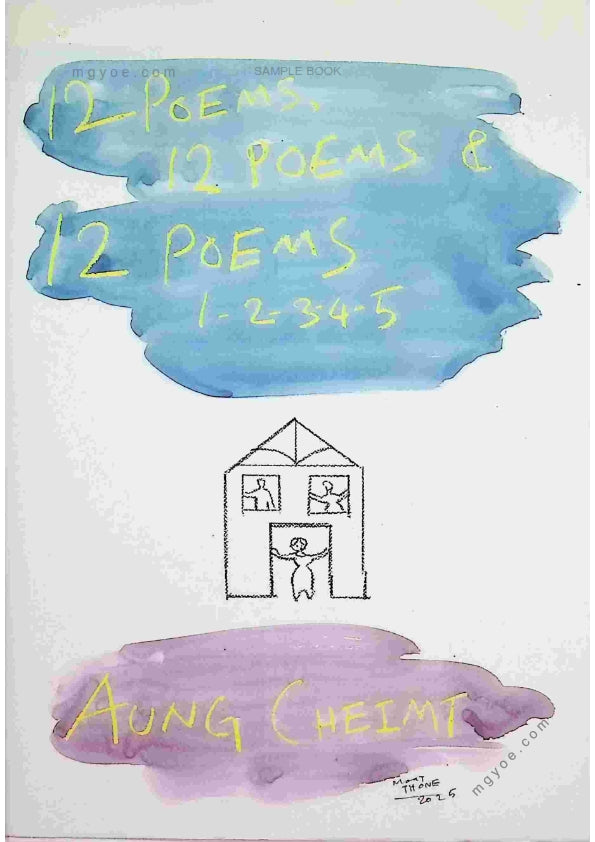 mgyoe.com SAMPLE BOOK
12 POEMS,
12 POEMS &
12 POEMS
1-2-3-4-5
AUNG CHEIMT
MOAT
THONE
2025
mgyoe.com